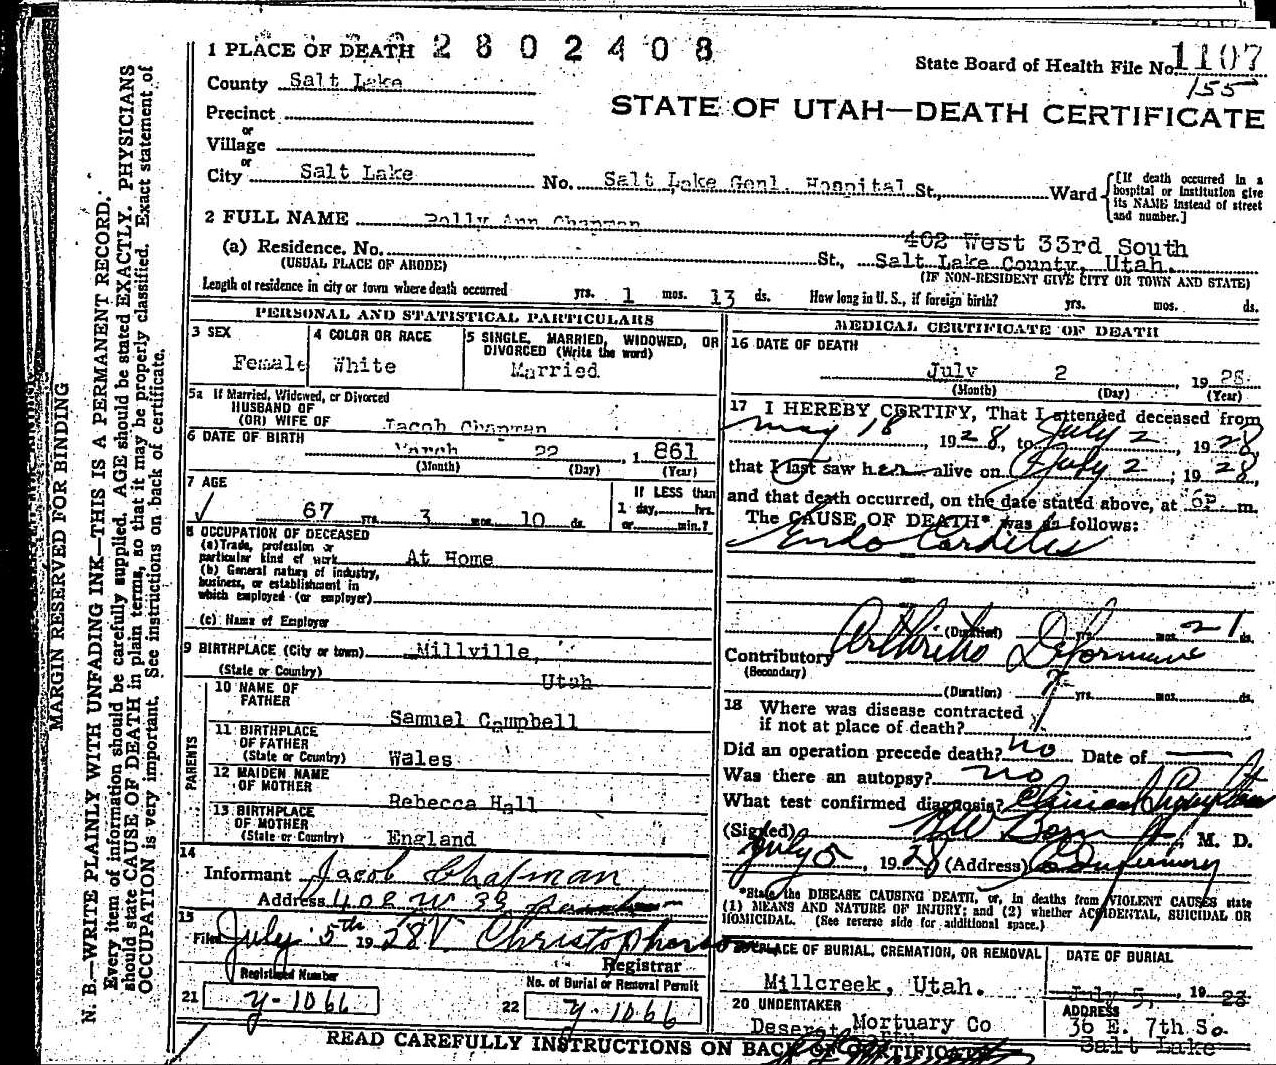 1 PLACE OF DEATH 2802408
State Board of Health File No. 1107
155
County Salt Lake
STATE OF UTAH—DEATH CERTIFICATE
Precinct
or
Village
or
City Salt Lake No. Salt Lake Genl. Hospital St., Ward
[If death occurred in a hospital or institution give its NAME instead of street and number.]
2 FULL NAME Polly Ann Chapman
402 West 33rd South
(a) Residence, No. St., Salt Lake County, Utah.
(USUAL PLACE OF ABODE) (IF NON-RESIDENT GIVE CITY OR TOWN AND STATE)
Length of residence in city or town where death occurred yrs. 1 mos. 13 ds. How long in U. S., if foreign birth? yrs. mos. ds.
PERSONAL AND STATISTICAL PARTICULARS
3 SEX Female
4 COLOR OR RACE White
5 SINGLE, MARRIED, WIDOWED, OR DIVORCED (Write the word) Married
5a If Married, Widowed, or Divorced
HUSBAND OF
(OR) WIFE OF Jacob Chapman
6 DATE OF BIRTH March 22, 1861
(Month) (Day) (Year)
7 AGE
67 yrs. 3 mos. 10 ds.
If LESS than
1 day, hrs.
or min.?
8 OCCUPATION OF DECEASED
(a) Trade, profession or
particular kind of work At Home
(b) General nature of industry,
business, or establishment in
which employed (or employer)
(c) Name of Employer
9 BIRTHPLACE (City or town) Millville,
(State or Country) Utah
PARENTS
10 NAME OF
FATHER Samuel Campbell
11 BIRTHPLACE
OF FATHER
(State or Country) Wales
12 MAIDEN NAME
OF MOTHER Rebecca Hall
13 BIRTHPLACE
OF MOTHER
(State or Country) England
14
Informant Jacob Chapman
Address 402 W 33 South
15
Filed July 5th 1928 V Christopherson
Registrar
Registered Number
21 y-1066
No. of Burial or Removal Permit
22 y-1066
MEDICAL CERTIFICATE OF DEATH
16 DATE OF DEATH
July 2, 1928
(Month) (Day) (Year)
17 I HEREBY CERTIFY, That I attended deceased from
May 18, 1928, to July 2, 1928,
that I last saw her alive on July 2, 1928,
and that death occurred, on the date stated above, at 6P. m.
The CAUSE OF DEATH* was as follows:
Endo Carditis
(Duration) yrs. mos. 21 ds.
Contributory Arthritis Deformans
(Secondary)
(Duration) yrs. mos. ds.
18 Where was disease contracted
if not at place of death?
Did an operation precede death? no Date of —
Was there an autopsy? no
What test confirmed diagnosis? Clinical Symptoms
(Signed) M. D.
July 5, 1928 (Address) Co Infirmary
*State the DISEASE CAUSING DEATH, or, in deaths from VIOLENT CAUSES state
(1) MEANS AND NATURE OF INJURY; and (2) whether ACCIDENTAL, SUICIDAL OR
HOMICIDAL. (See reverse side for additional space.)
PLACE OF BURIAL, CREMATION, OR REMOVAL
Millcreek, Utah.
DATE OF BURIAL
July 5, 1928
20 UNDERTAKER
Deseret Mortuary Co
ADDRESS
36 E. 7th So.
Salt Lake
READ CAREFULLY INSTRUCTIONS ON BACK OF CERTIFICATE
MARGIN RESERVED FOR BINDING
N. B.—WRITE PLAINLY WITH UNFADING INK—THIS IS A PERMANENT RECORD.
Every item of information should be carefully supplied. AGE should be stated EXACTLY. PHYSICIANS
should state CAUSE OF DEATH in plain terms, so that it may be properly classified. Exact statement of
OCCUPATION is very important. See instructions on back of certificate.